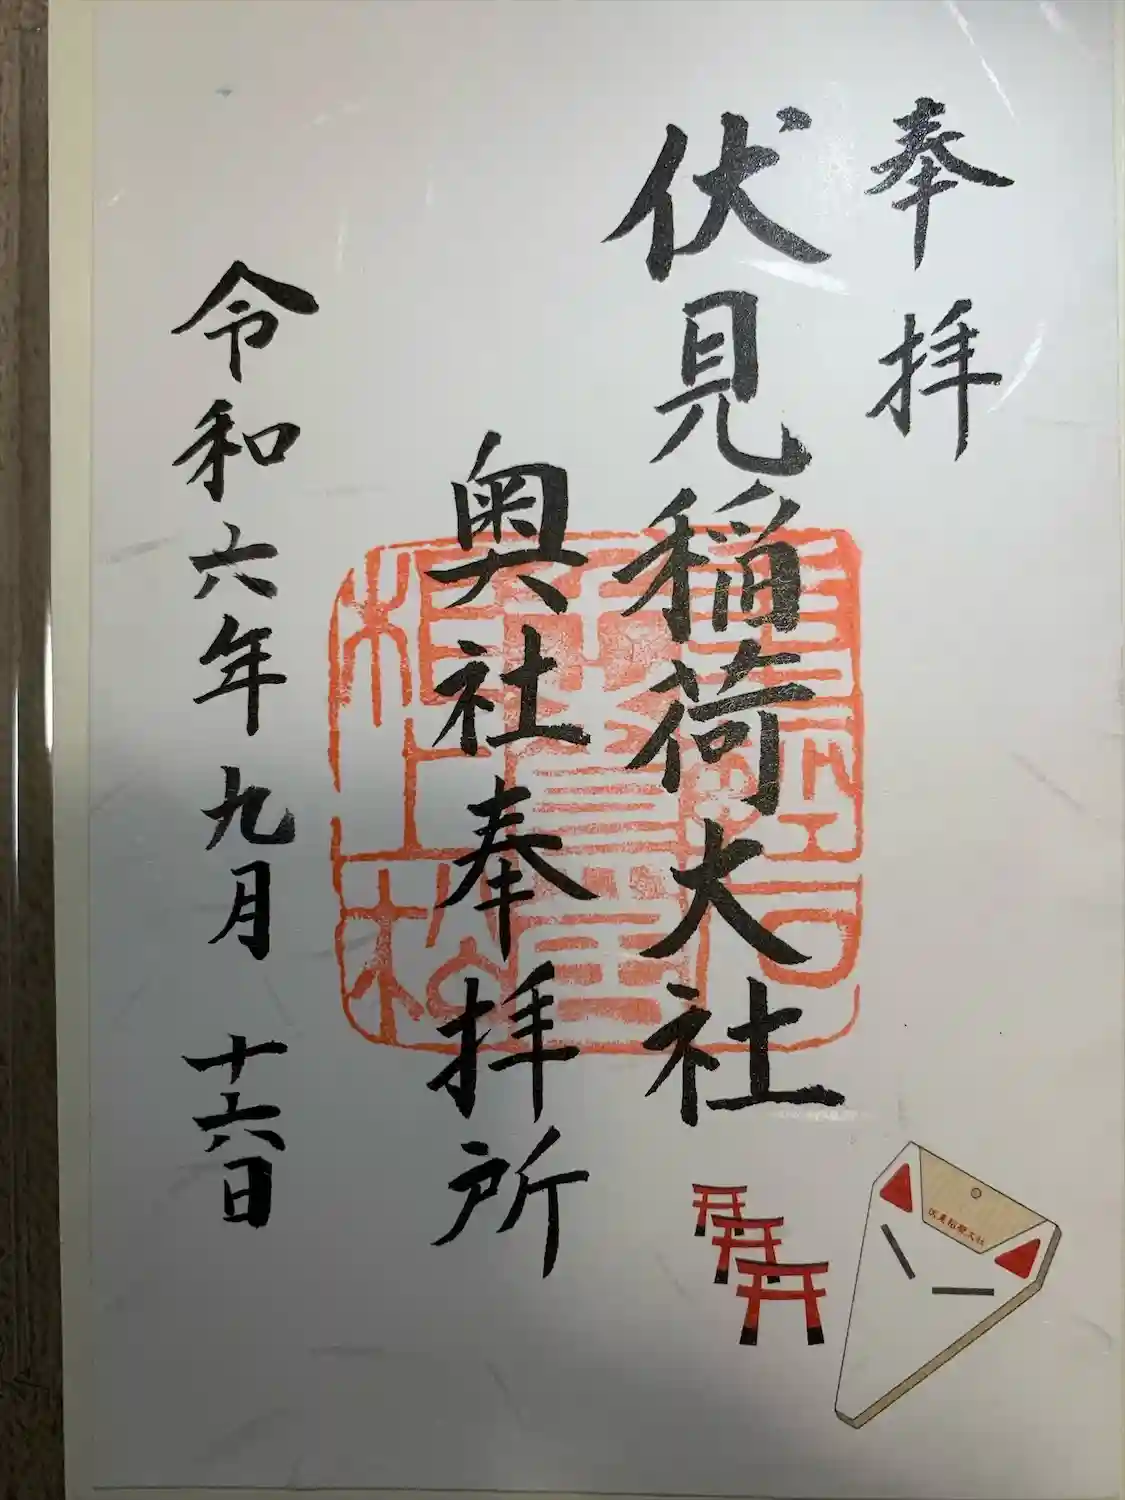 奉拝
伏見稲荷大社
奥社奉拝所
令和六年九月十六日
伏見稲荷大社